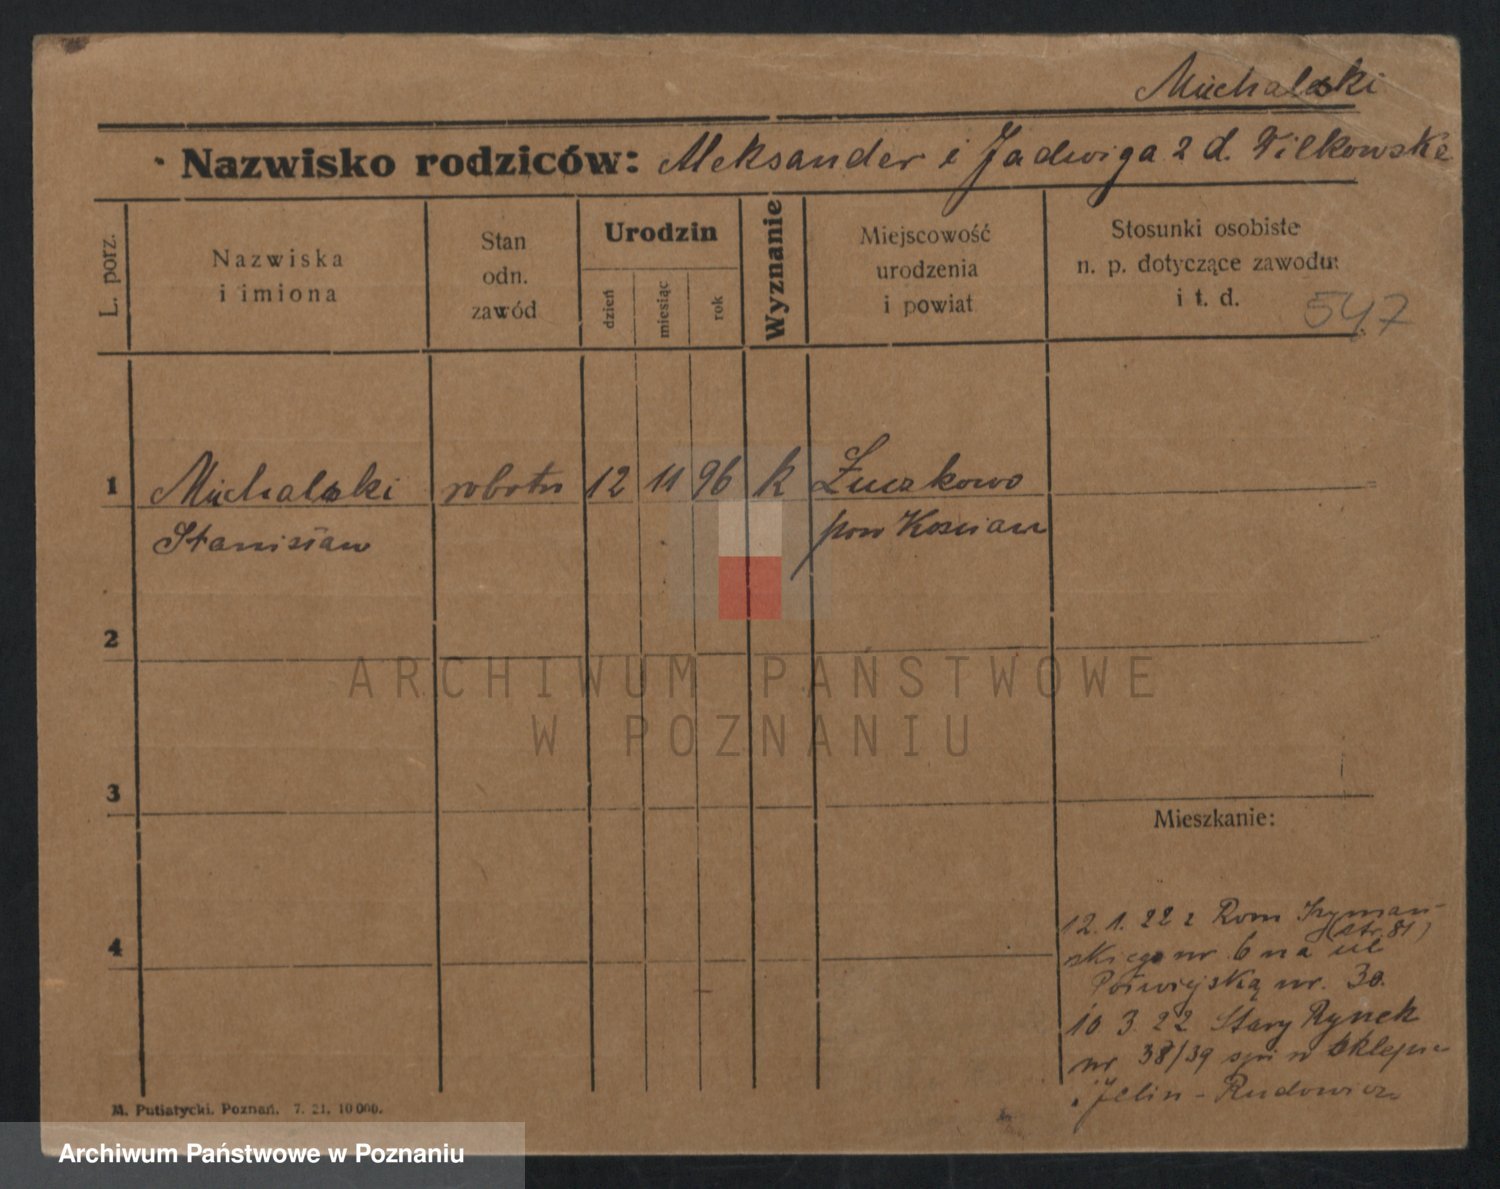 Michalski
Nazwisko rodziców: Aleksander i Jadwiga z d. Filkowska
L. porz.
Nazwiska
i imiona
Stan
odn.
zawód
Urodzin
dzień
miesiąc
rok
Wyznanie
Miejscowość
urodzenia
i powiat
Stosunki osobiste
n. p. dotyczące zawodu:
i t. d.
547
1
Michalski
Stanisław
robotn
12
11
96
k
Łuczkowo
pow Kościan
2
ARCHIWUM PAŃSTWOWE
W POZNANIU
3
Mieszkanie:
4
12. 1. 22 z Rom Szymań-
(str. 81)
skiego nr. 6 na ul
nr. 30.
10 3 22 Stary Rynek
nr 38/39 w sklepie
Rudowicz
M. Putiatycki, Poznań. 7. 21. 10 000.
Archiwum Państwowe w Poznaniu